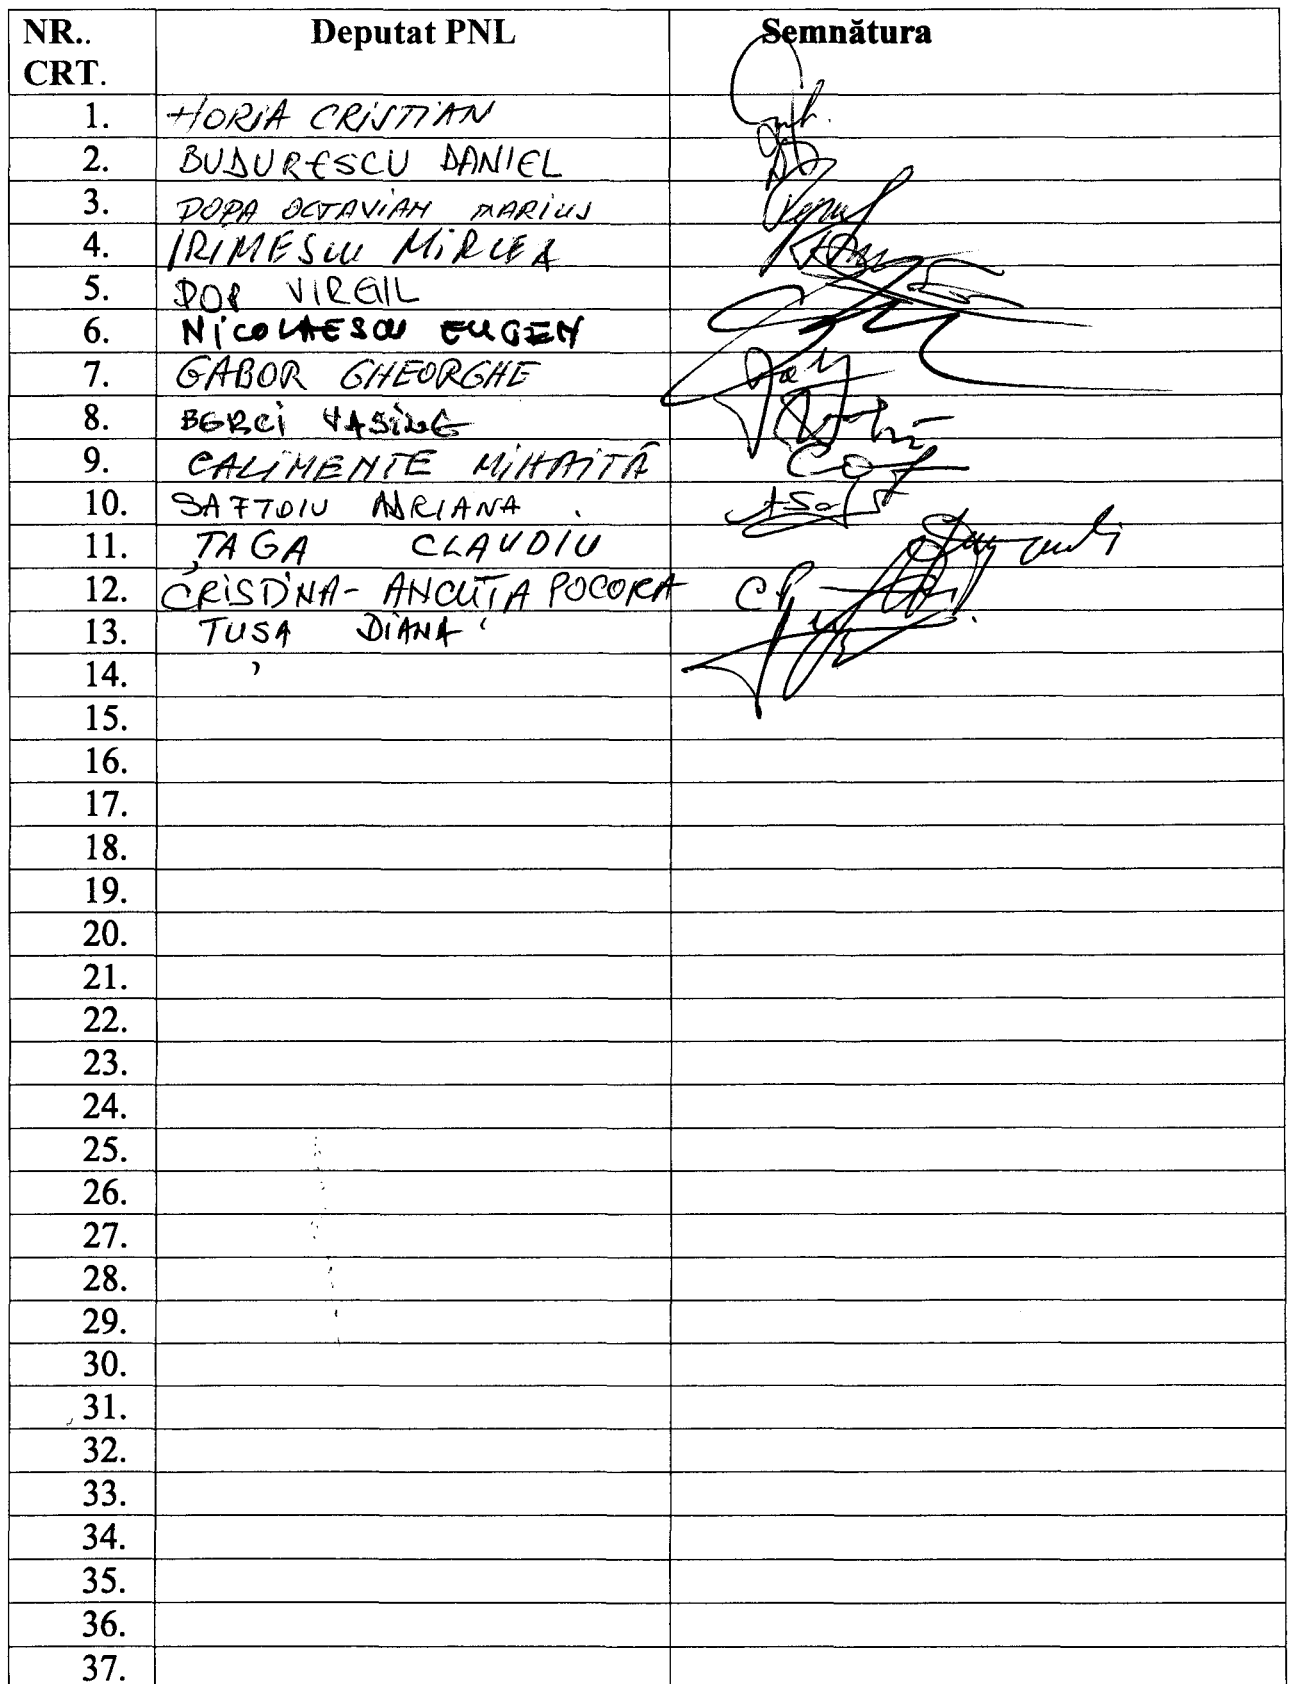 NR.. Deputat PNL Semnătura
CRT.
1. HORIA CRISTIAN
2. BUDURESCU DANIEL
3. POPA OCTAVIAN MARIUS
4. IRIMESCU MIRCEA
5. POP VIRGIL
6. NICOLAESCU EUGEN
7. GABOR GHEORGHE
8. BERCI VASILE
9. CALIMENTE MIHAITĂ
10. SAFTOIU ADRIANA
11. ȚAGA CLAUDIU
12. CRISTINA-ANCUȚA POCORA
13. TUȘA DIANA
14.
15.
16.
17.
18.
19.
20.
21.
22.
23.
24.
25.
26.
27.
28.
29.
30.
31.
32.
33.
34.
35.
36.
37.